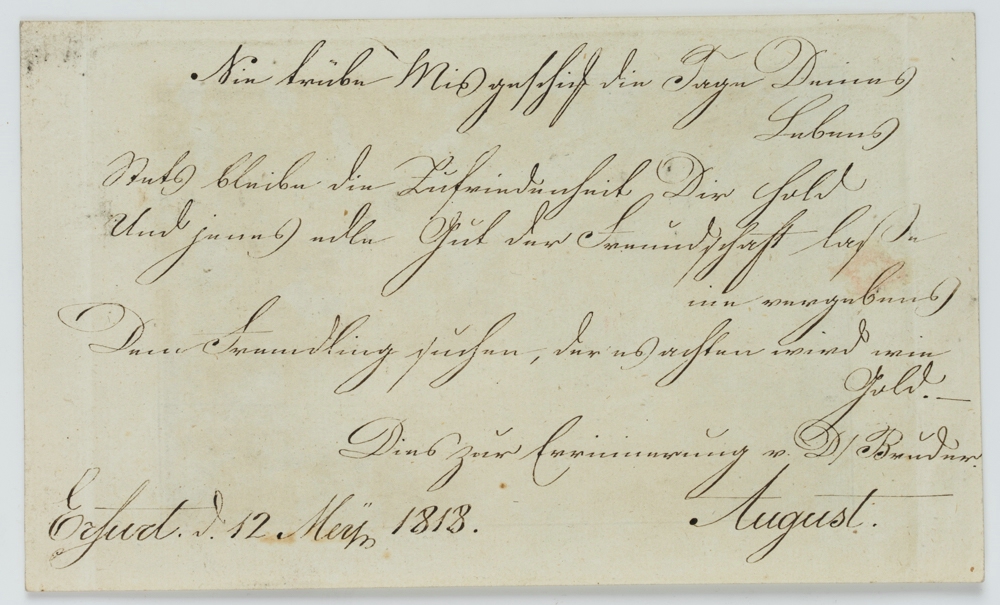 Nie trübe Misgeschik die Tage Deines
Lebens
Stets bleibe die Zufriedenheit Dir hold
Und jenes edle Gut der Freundschaft laße
nie vergebens
Dem Fremdling suchen, der es achten wird wie
Gold. —
Dies zur Errinnerung v. D/ Bruder
August.
Erfurt. d. 12 Mey 1818.